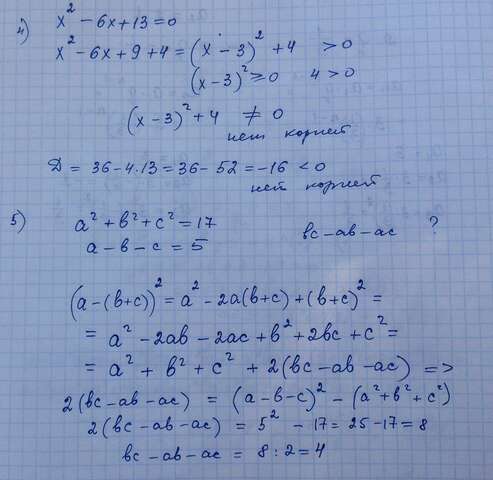 4) x² - 6x + 13 = 0
x² - 6x + 9 + 4 = (x - 3)² + 4 > 0
(x - 3)² ≥ 0 4 > 0
(x - 3)² + 4 ≠ 0
нет корней
D = 36 - 4.13 = 36 - 52 = -16 < 0
нет корней
5) a² + b² + c² = 17
a - b - c = 5 bc - ab - ac ?
(a - (b + c))² = a² - 2a(b + c) + (b + c)² =
= a² - 2ab - 2ac + b² + 2bc + c² =
= a² + b² + c² + 2(bc - ab - ac) =>
2(bc - ab - ac) = (a - b - c)² - (a² + b² + c²)
2(bc - ab - ac) = 5² - 17 = 25 - 17 = 8
bc - ab - ac = 8 : 2 = 4